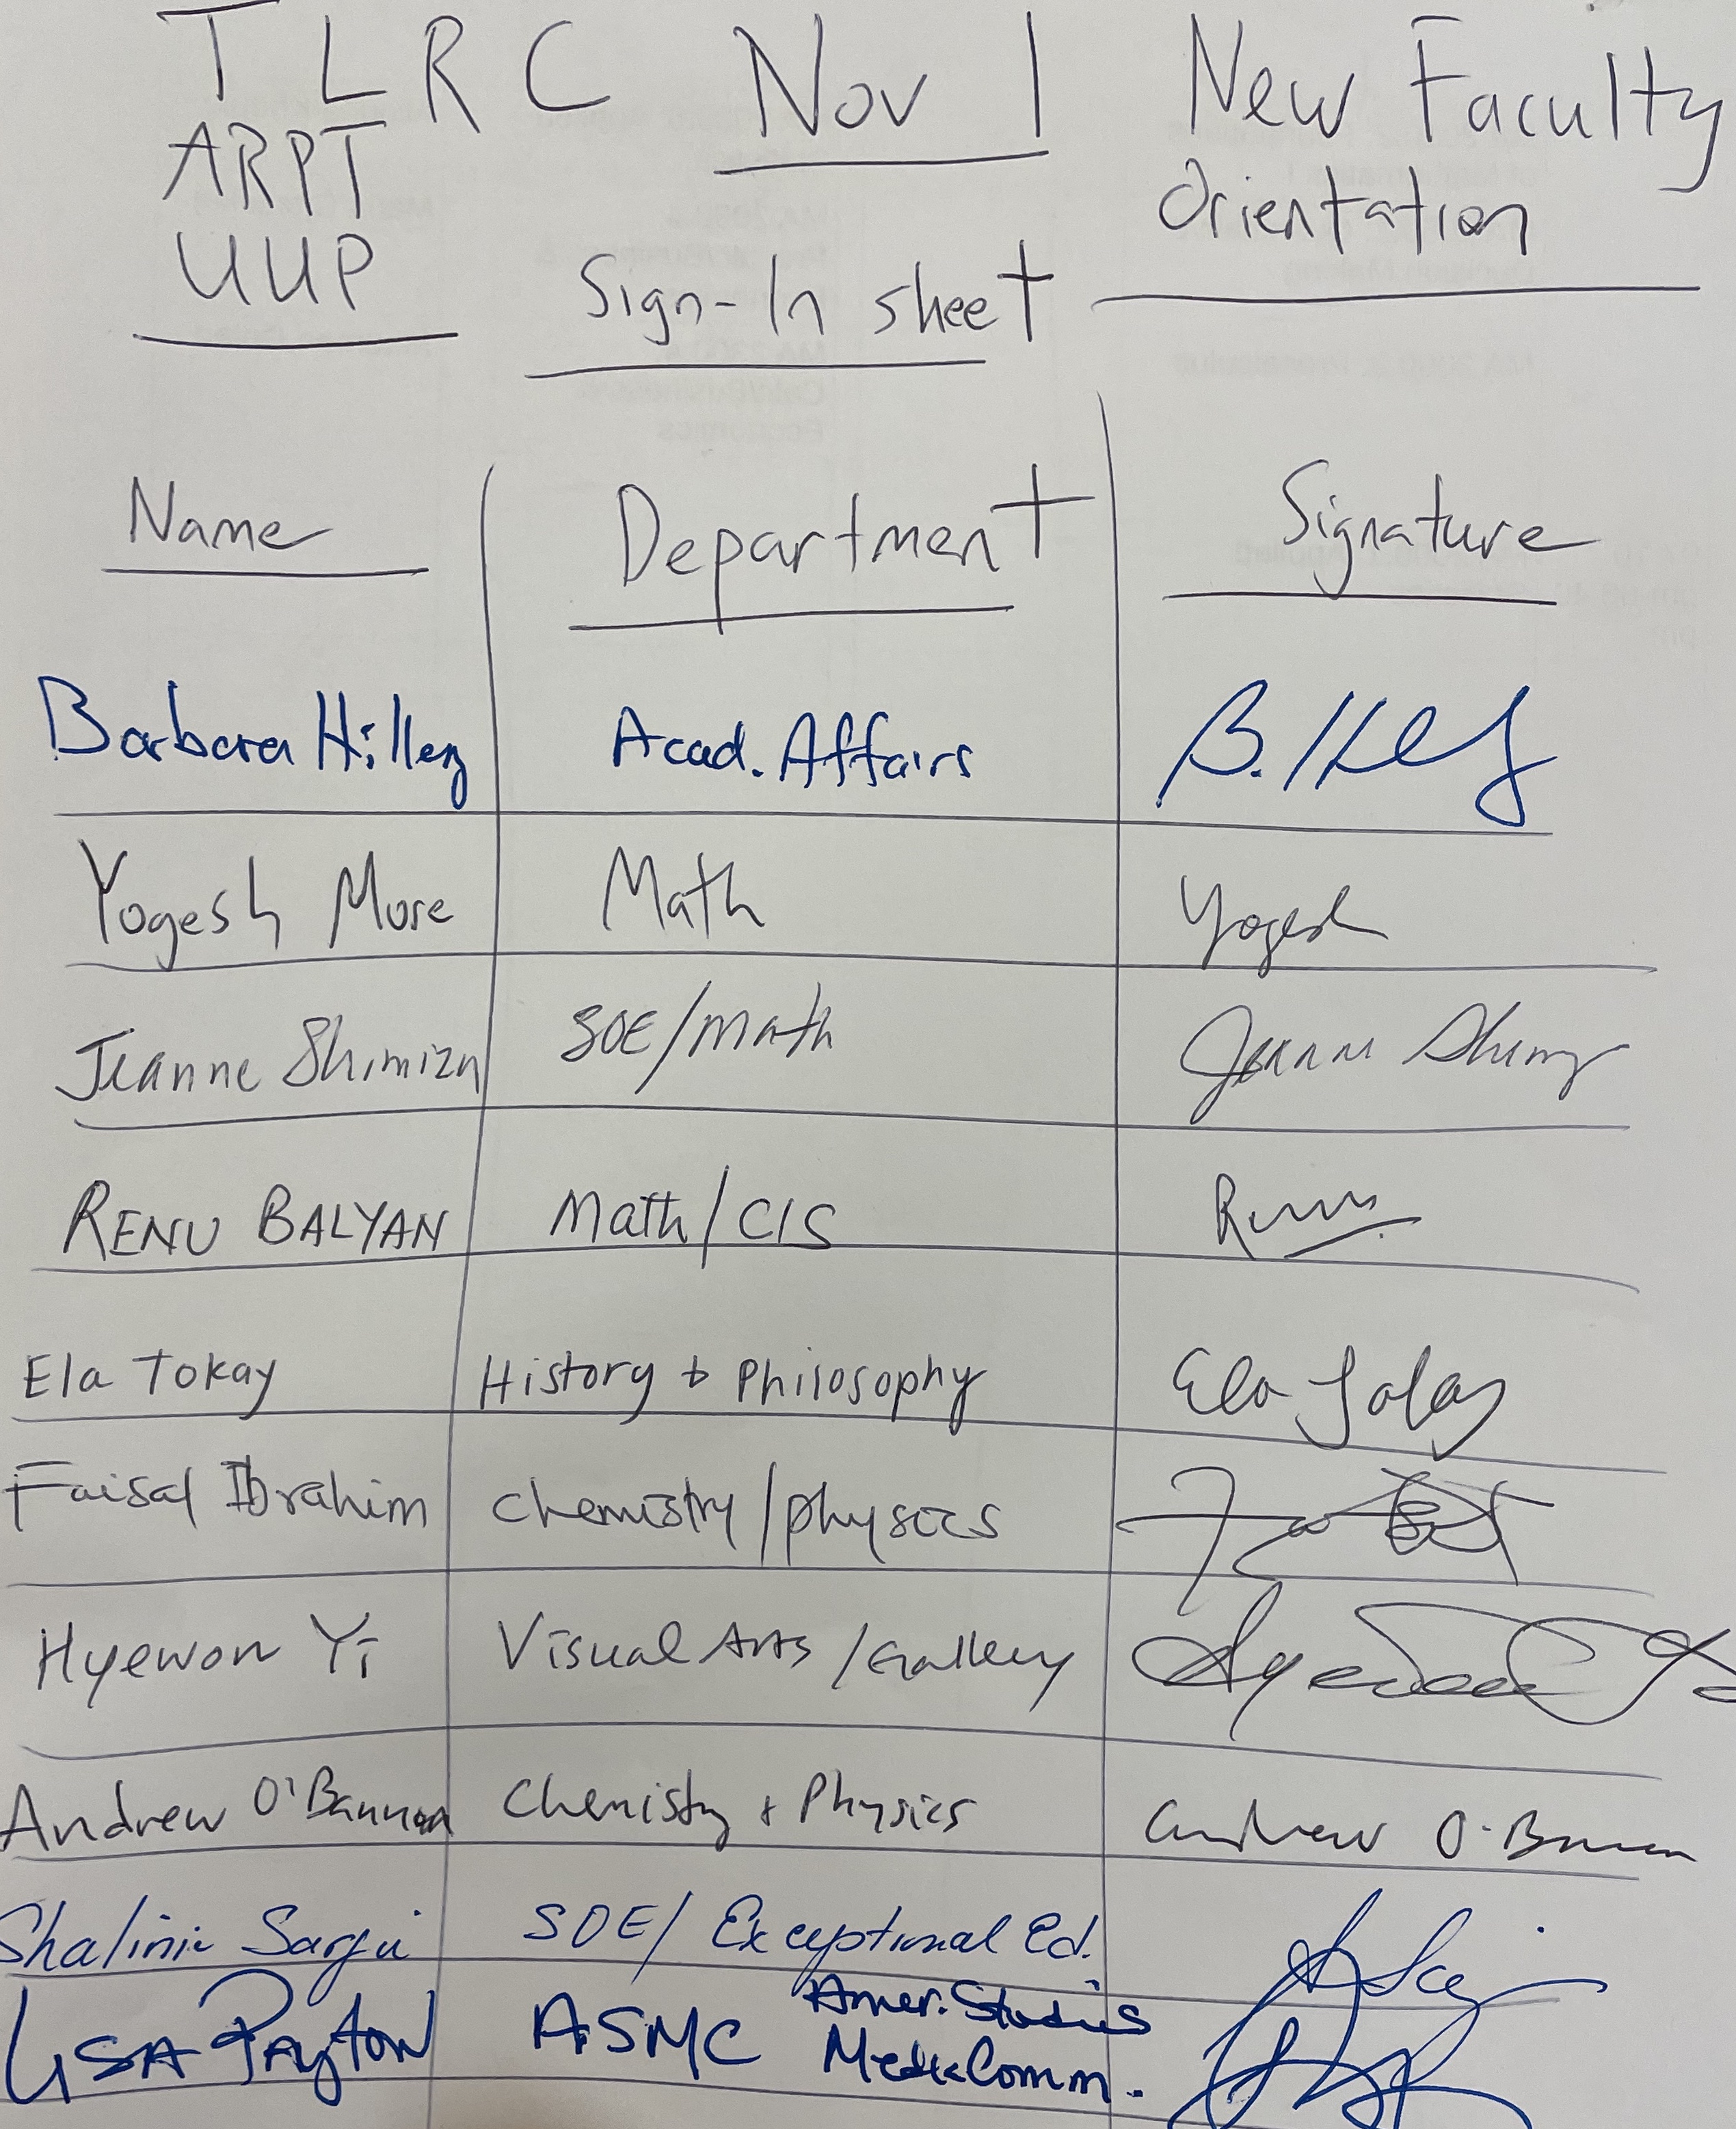 TLRC Nov 1 New Faculty
ARPT Orientation
UUP Sign-In sheet
Name Department Signature
Barbara Hilley Acad. Affairs B. Hilley
Yogesh More Math Yogesh
Jeanne Shimizu SOE/Math Jeanne Shimizu
RENU BALYAN Math/CIS Renu
Ela Tokay History & Philosophy Ela Tokay
Faisal Ibrahim Chemistry/physics
Hyewon Yi Visual Arts/Gallery Hyewon Yi
Andrew O'Bannon Chemistry & Physics Andrew O'Bannon
Shalini SOE/ Exceptional Ed.
LISA PAYTON ASMC Amer. Studies
Media Comm.